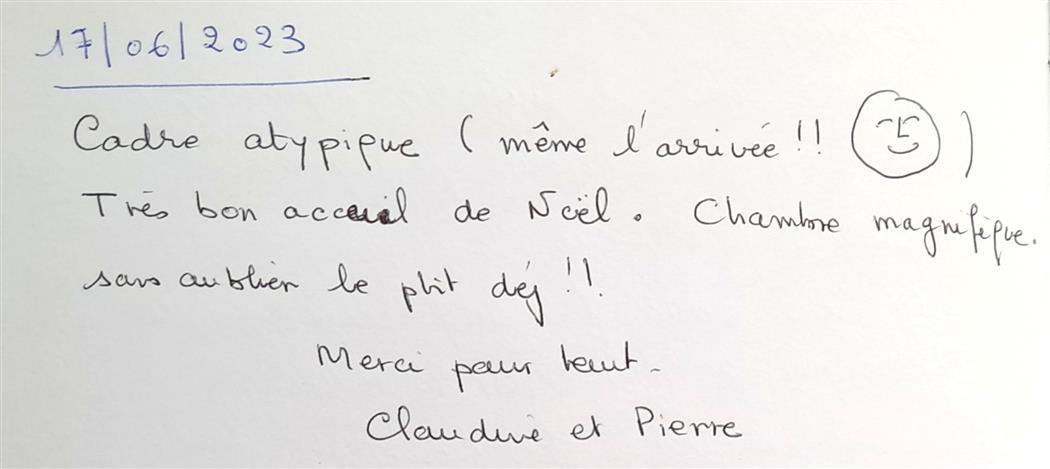 17/06/2023
Cadre atypique ( même l'arrivée !! )
Très bon accueil de Noël. Chambre magnifique.
sans oublier le ptit déj !!
Merci pour tout.
Claudine et Pierre